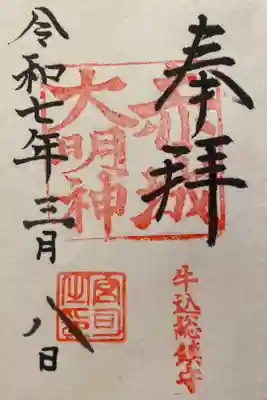 奉拝
牛込総鎮守
赤城
大明神
宮司
之印
令和七年三月八日